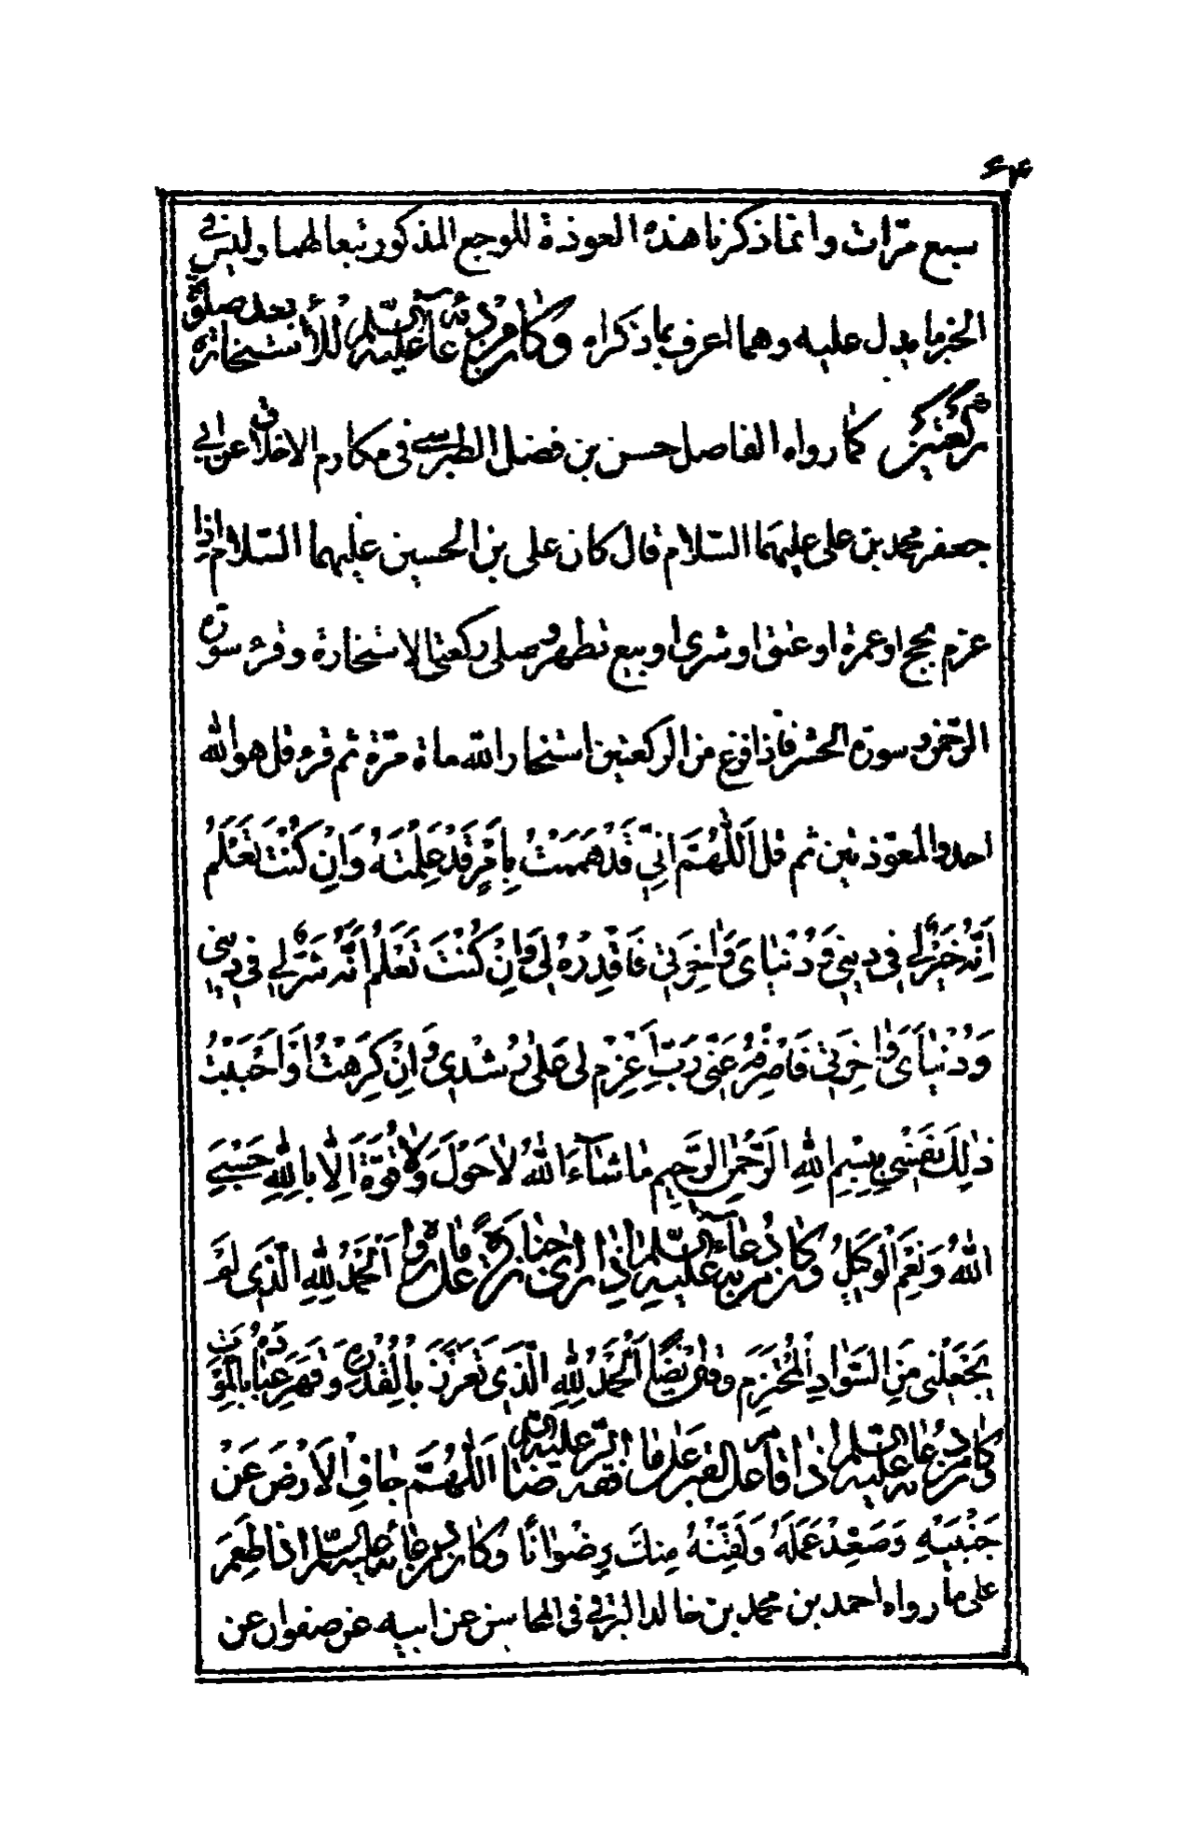 ۶۴
سبع مرّات وانما ذكرنا هذه العوذة للوجع المذكور تبعا لهما وليس في
الخبر ما يدل عليه وهما اعرف بما ذكراه وَكٰانَ مِنْ دُعٰائِهِ عَلَيْهِ السَّلٰمُ لِلْأسْتِخٰارَةِ بَعْدَ صَلٰوةِ
رَكْعَتَيْنِ كما رواه الفاضل حسن بن فضل الطبرسي في مكارم الاخلاق عن ابي
جعفر محمد بن علي عليهما السّلام قال كان علي بن الحسين عليهما السّلام اذا
عزم بحج او عمرة او عتق او شرى او بيع تطهر وصلى ركعتى الاستخارة وقرء سورة
الرّحمن وسورة الحشر فاذا فرغ من الركعتين استخار اللّه مأة مرّة ثم قرء قل هو الله
احد والمعوّذتين ثم قال اَللّٰهُمَّ اِنّي قَدْ هَمَمْتُ بِاَمْرٍ قَدْ عَلِمْتَهُ وَاِنْ كُنْتَ تَعْلَمُ
اَنَّهُ خَيْرٌ لي في ديني وَدُنْيٰاىَ وَاٰخِرَتي فَاقْدِرْهُ لي وَاِنْ كُنْتَ تَعْلَمُ اَنَّهُ شَرٌّ لي في ديني
وَدُنْيٰاىَ وَاٰخِرَتي فَاصْرِفْهُ عَنّي رَبِّ اَعْزِمْ لي عَلٰى رُشْدي وَاِنْ كَرِهَتْ اَوْ اَحَبَّتْ
ذٰلِكَ نَفْسي بِبِسْمِ اللّٰهِ الرَّحْمٰنِ الرَّحيمِ مٰا شٰاءَ اللّٰهُ لٰا حَوْلَ وَلٰا قُوَّةَ اِلّٰا بِاللّٰهِ حَسْبِيَ
اللّٰهُ وَنِعْمَ الْوَكيلُ وَكٰانَ مِنْ دُعٰائِهِ عَلَيْهِ السَّلٰمُ اِذٰا رَاٰى جَنٰازَةً عَلٰى مٰا رُوِيَ اَلْحَمْدُ لِلّٰهِ الَّذي لَمْ
يَجْعَلْني مِنَ السَّوٰادِ الْمُخْتَرَمِ وقال ايضًا اَلْحَمْدُ لِلّٰهِ الَّذي تَعَزَّزَ بِالْقُدْرَةِ وَقَهَرَ عِبٰادَهُ بِالْمَوْتِ
وكٰانَ مِنْ دُعٰائِهِ عَلَيْهِ السَّلٰمُ اِذٰا قٰامَ عَلَى الْقَبْرِ عَلٰى مٰا فقه الرّضا عليه السلم اَللّٰهُمَّ جٰافِ الْاَرْضَ عَنْ
جَنْبَيْهِ وَصَعِّدْ عَمَلَهُ وَلَقِّنْهُ مِنْكَ رِضْوٰانًا وَكٰانَ مِنْ دُعٰائِهِ عَلَيْهِ السَّلٰمُ اِذٰا طَعِمَ
على ما رواه احمد بن محمد بن خالد البرقي في المحاسن عن ابيه عن صفوان عن